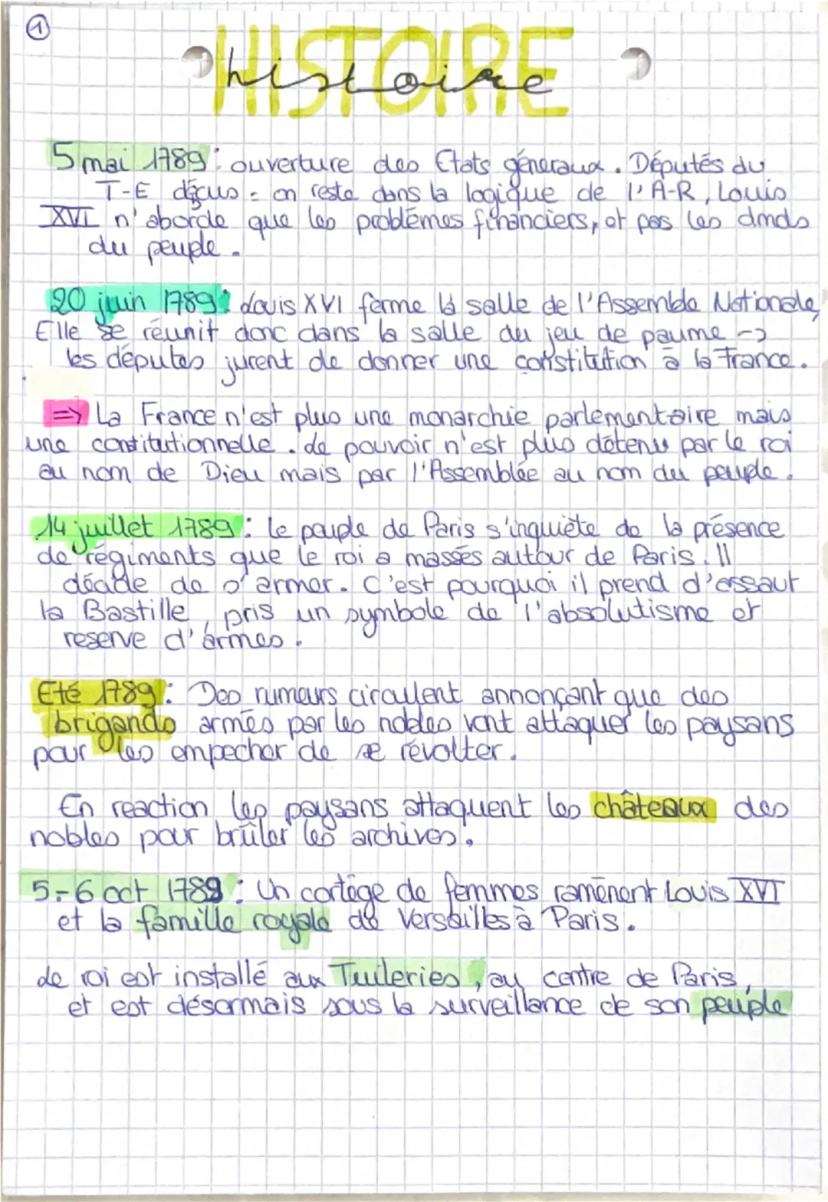 1
HISTOIRE
histoire
5 mai 1789 : ouverture des Etats généraux. Députés du
T-E déçus = on reste dans la logique de l'A-R, Louis
XVI n'aborde que les problèmes financiers, et pas les dmds
du peuple.
20 juin 1789 : Louis XVI ferme la salle de l'Assemble Nationale,
Elle se réunit donc dans la salle du jeu de paume ->
les députés jurent de donner une constitution à la France.
=> La France n'est plus une monarchie parlementaire mais
une constitutionnelle. Le pouvoir n'est plus détenu par le roi
au nom de Dieu mais par l'Assemblée au nom du peuple.
14 juillet 1789 : le peuple de Paris s'inquiète de la présence
de régiments que le roi a massés autour de Paris. Il
décide de s'armer. C'est pourquoi il prend d'assaut
la Bastille, pris un symbole de l'absolutisme et
reserve d'armes.
Eté 1789 : Des rumeurs circulent annonçant que des
brigands armés par les nobles vont attaquer les paysans
pour les empecher de se révolter.
En reaction les paysans attaquent les châteaux des
nobles pour brûler les archives.
5-6 oct 1789 : Un cortège de femmes ramènent Louis XVI
et la famille royale de Versailles à Paris.
Le roi est installé aux Tuileries, au centre de Paris,
et est désormais sous la surveillance de son peuple